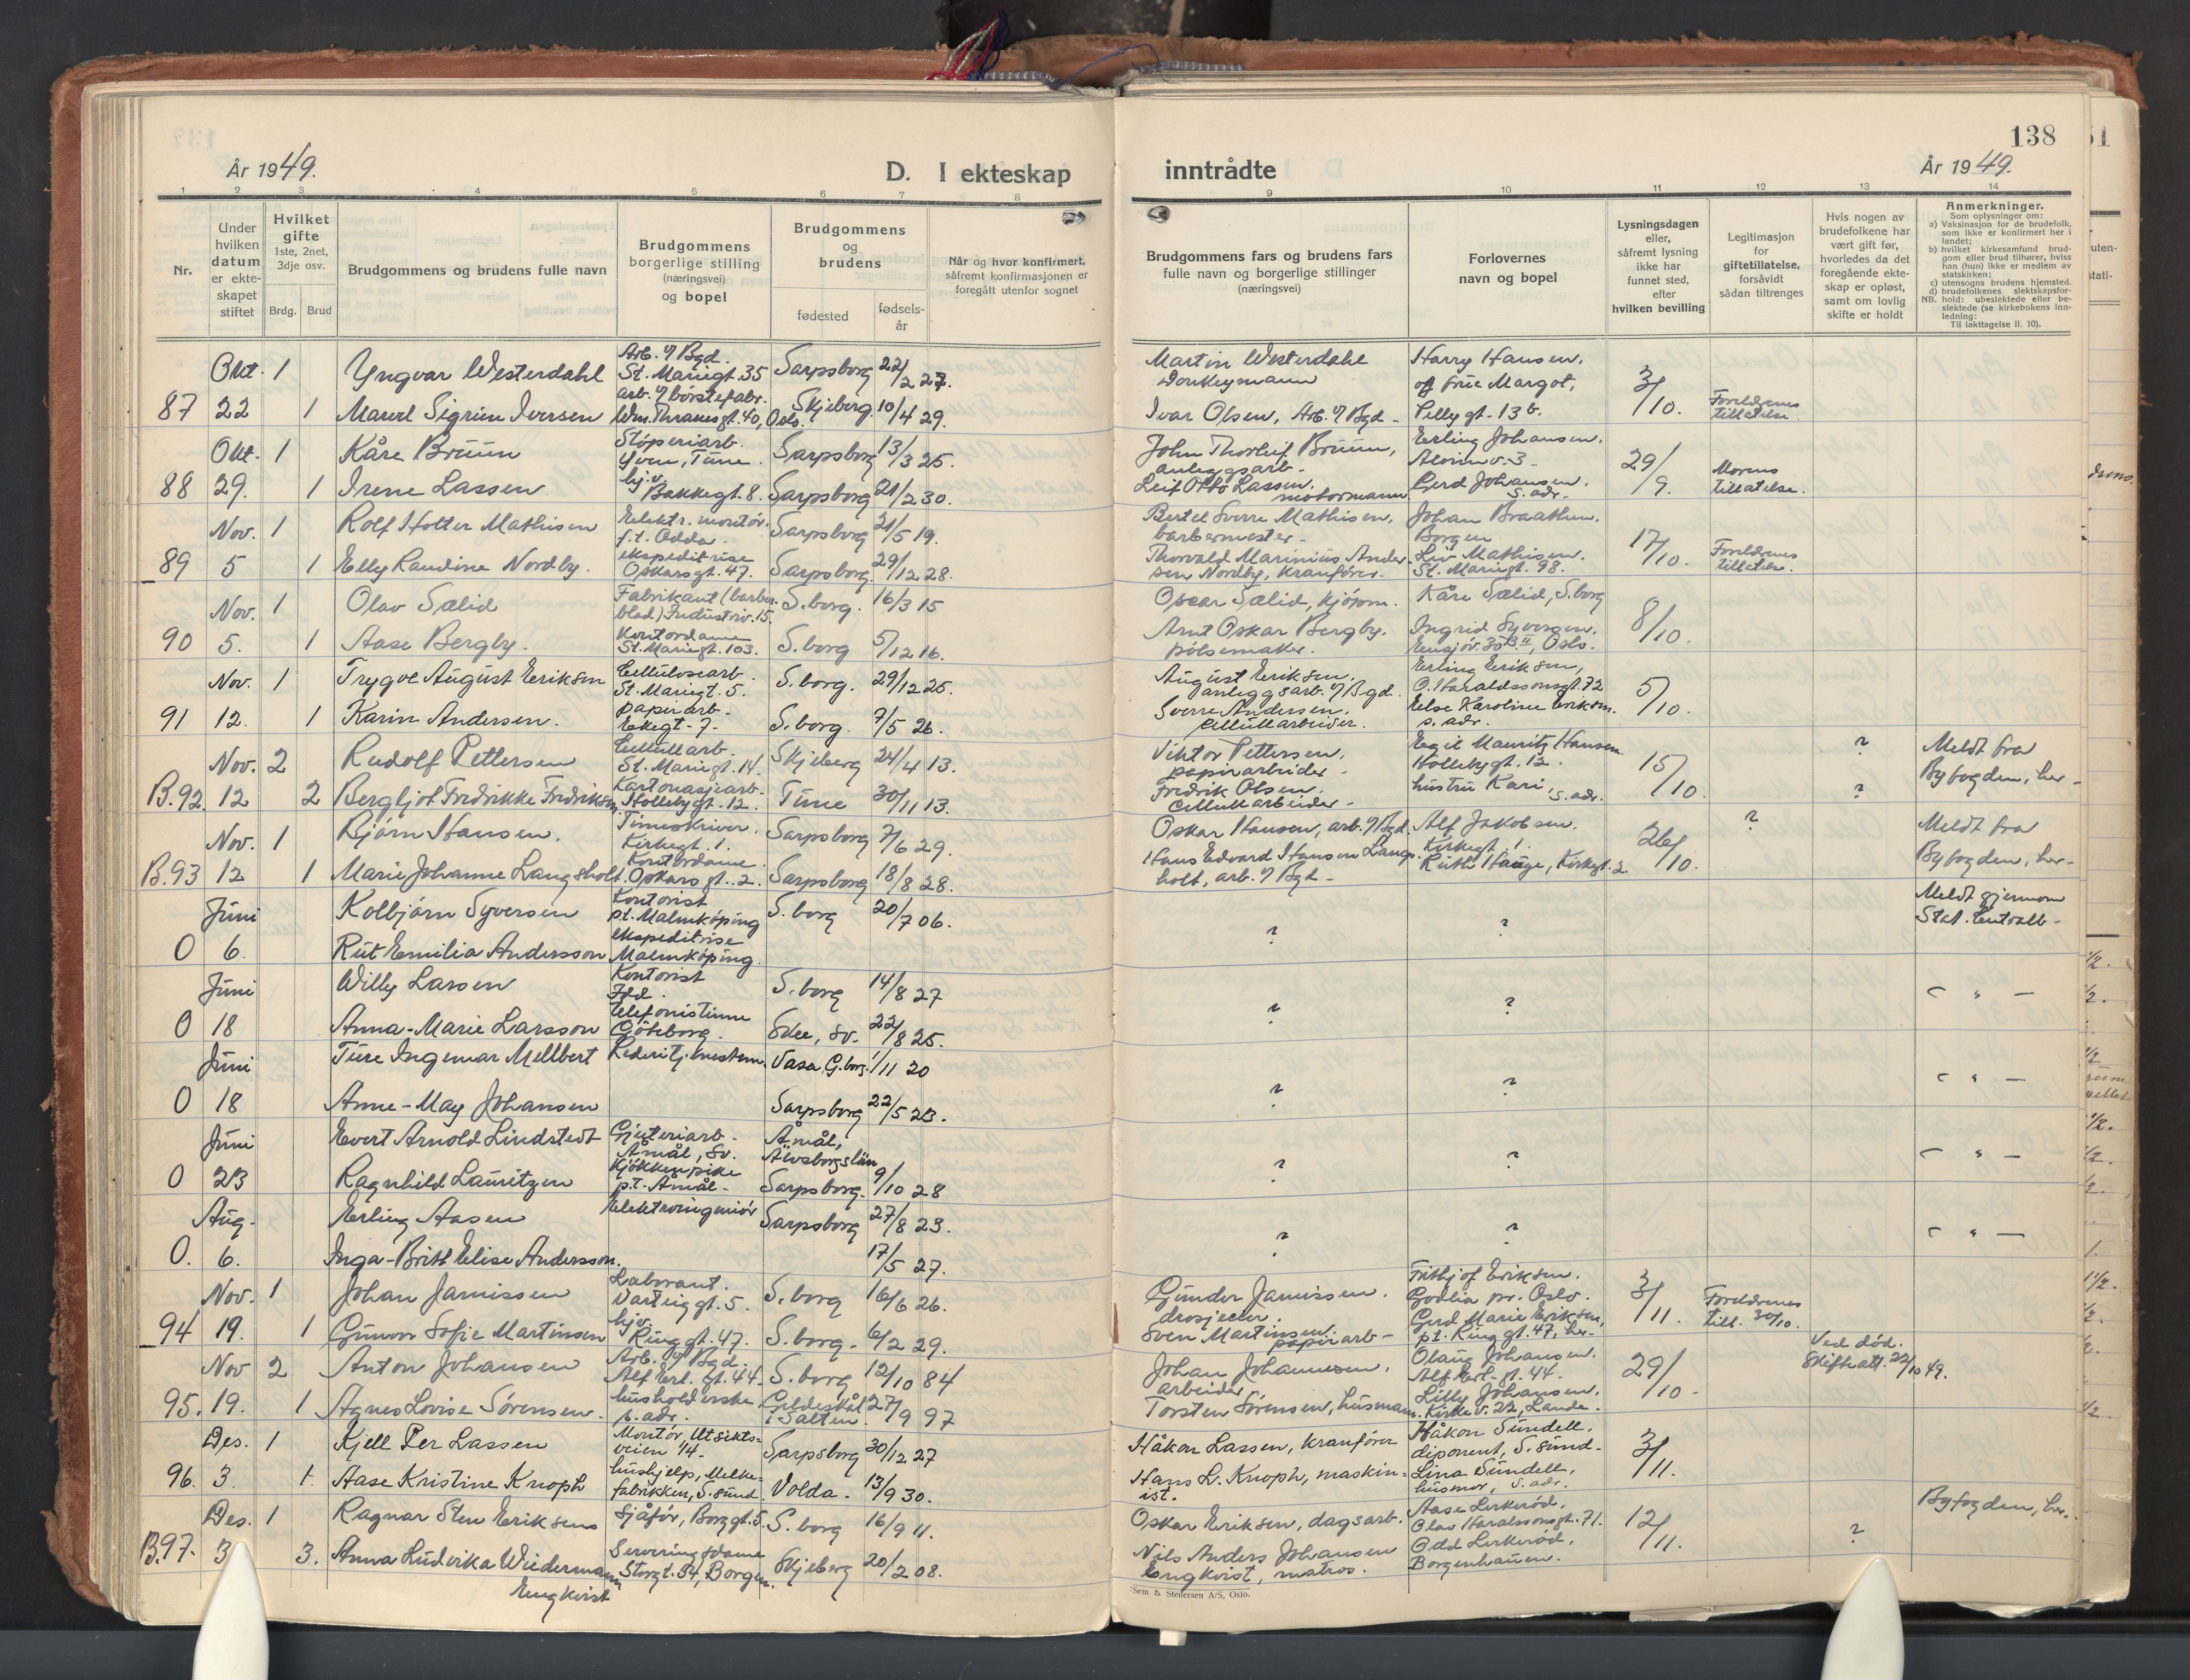 År 1949.
D. I ekteskap
1 2 3 4 5 6 7 8
Nr.
Under hvilken datum er ekteskapet stiftet
Hvilket gifte
1ste, 2net, 3dje osv.
Brdg. Brud
Brudgommens og brudens fulle navn
Brudgommens borgerlige stilling (næringsvei) og bopel
Brudgommens og brudens
fødested
fødsels-år
Når og hvor konfirmert, såfremt konfirmasjonen er foregått utenfor sognet
Okt. 1 Yngvar Westerdahl Arb. v/ Bgd. St. Mariegt. 35 Sarpsborg 22/2 27.
87 22 1 Sigrun Iversen arb. v/ børstefabr. Wm. Thranesgt. 40, Oslo. Skjeberg 10/4 29.
Okt. 1 Kåre Bruun Støperiarb. Yven, Tune. Sarpsborg 13/3 25.
88 29. 1 Irene Lassen hj.v. Bakkegt. 8. Sarpsborg 21/2 30.
Nov. 1 Rolf Holter Mathisen Elektr. montør. f.t. Odda. Sarpsborg 21/5 19.
89 5 1 Elly Raudine Nordby. ekspeditrise Oskarsgt. 47. Sarpsborg 29/12 28.
Nov. 1 Olav Sælid Fabrikant (barberblad) Industriv. 15. S.borg. 16/3 15
90 5. 1 Aase Bergby. Kontordame St. Mariegt. 103. S.borg 5/12 16.
Nov. 1 Trygve August Eriksen Cellulosearb. St. Mariegt. 5. S.borg. 29/12 25.
91 12. 1 Karin Andersen. papirarb. Ekegt. 7. S.borg. 7/5 26.
Nov. 2 Rudolf Pettersen Cellull arb. St. Mariegt. 14. Skjeberg 24/4 13.
B.92. 12 2 Bergljot Fredrikke Fredriksen, Kartonasjearb. Hollebygt. 12. Tune 30/11 13.
Nov. 1 Bjørn Hansen. Timeskriver. Kirkegt. 1. Sarpsborg 7/6 29.
B.93 12 1 Marie Johanne Langsholt. Kontordame. Oskarsgt. 2. Sarpsborg 18/8 28.
Juni Kolbjørn Syversen Kontorist p.t. Malmköping S.borg 20/7 06.
0 6. Rut Emilia Andersson ekspeditrise Malmköping.
Juni Willy Larsen Kontorist Idd. S.borg 14/8 27
0 18 Anna-Marie Larsson telefonistinne Göteborg. Sv. 22/8 25.
Juni Ture Ingemar Mellbert Vasa, G.borg. 1/11 20
0 18 Anne-May Johansen Sarpsborg 22/5 23.
Juni Evert Arnold Lindstedt Gjuteriarb. Åmål, Sv. Åmål, Älvsborgslän
0 23 Ragnhild Lauritzen Kjøkkenpike p.t. Åmål. Sarpsborg. 9/10 28
Aug. Erling Aasen Elektroingeniør Sarpsborg 27/8 23.
0. 6. Inga-Britt Elise Andersson. 17/5 27.
Nov. 1 Johan Jamissen Laborant. Varteiggt. 5. S.borg 16/6 26.
94 19. 1 Gunvor Sofie Martinsen hjv. Ringgt. 47. S.borg. 6/2 29.
Nov 2 Anton Johansen Arb. v/ Bgd. Alf Erl. gt. 44. S.borg 12/10 84
95. 19. 1 Agnes Lovise Sørensen. husholderske s. adr. Gildeskål i Salten. 27/9 97
Des. 1 Kjell Per Lassen Montør, Utsiktsveien 14. Sarpsborg 30/12 27
96. 3. 1. Aase Kristine Knoph hushjelp, Melkefabrikken, S.sund. Volda. 13/9 30.
Des. 1 Ragnar Sten Eriksen Sjåfør, Borggt. 5. S.borg 16/9 11.
B.97. 3 3. Anna Ludvika Wiedermann Engkvist Serveringsdame Storgt. 34, Borgen. Skjeberg 20/2 08.
138
inntrådte
År 1949.
9 10 11 12 13 14
Brudgommens fars og brudens fars fulle navn og borgerlige stillinger (næringsvei)
Forlovernes navn og bopel
Lysningsdagen eller, såfremt lysning ikke har funnet sted, efter hvilken bevilling
Legitimasjon for giftetillatelse, forsåvidt sådan tiltrenges
Hvis nogen av brudefolkene har vært gift før, hvorledes da det foregående ekteskap er opløst, samt om lovlig skifte er holdt
Anmerkninger.
Som oplysninger om:
a) Vaksinasjon for de brudefolk, som ikke er konfirmert her i landet;
b) hvilket kirkesamfund brudgom eller brud tilhører, hviss han (hun) ikke er medlem av statskirken;
c) utensogns brudens hjemsted.
d) brudefolkenes slektskapsforhold: ubeslektede eller beslektede (se kirkebokens innledning:
NB.
Til iakttagelse II. 10).
Martin Westerdahl Donkeymann Harry Hansen. og frue Margot, 3/10.
Ivar Olsen, Arb. v/ Bgd. Pellygt. 13 b. Foreldrenes tillatelse
John Thorleif Bruun, anleggsarb. Erling Johansen. Alvimv. 3. 29/9.
Leif Otto Lassen. motormann Gerd Johansen. s. adr. Morens tillatelse.
Bertel Sverre Mathisen, barbermester. Johan Braathen. Borgen 17/10.
Thorvald Marinius Andersen Nordby, kranfører. Liv Mathisen. St. Mariegt. 98. Foreldrenes tillatelse.
Oscar Sælid, kjøpm. Kåre Sælid, S.borg 8/10.
Arnt Oskar Bergby. pølsemaker. Ingrid Syversen. Ensjøv. 30 B II, Oslo.
August Eriksen. anleggsarb. v/ Bgd. Erling Eriksen, O. Haraldssonsgt. 72 5/10.
Sverre Andersen. Cellull arbeider. Else Karoline Eriksen. s. adr.
Viktor Pettersen, papirarbeider. Egil Mauritz Hansen. Hollebygt. 12. 15/10 ? Meldt fra Byfogden, her.
Fredrik Olsen, Cellull arbeider. hustru Kari, s. adr. ?
Oskar Hansen, arb. v/ Bgd. Alf Jakobsen. Kirkegt. 1. 26/10. ? Meldt fra Byfogden, her.
Hans Edvard Hansen Langsholt, arb. v/ Bgd. Ruth Hauge, Kirkegt. 2.
? ? Meldt gjennom Stat. Centralb.
? ? — " —
? ? — " —
? ? — " —
? ? — " —
Gunder Jamissen. drosjeeier. Fritjof Eriksen. Godlia pr. Oslo. 3/11. Foreldrenes till. 30/10.
Sven Martinsen. papirarb. Gerd Marie Eriksen, p.t. Ringgt. 47, her.
Johan Johannesen. arbeider Olaug Johansen. Alf Erl. gt. 44. 29/10. Ved død. Skifteatt. 22/10 49.
Torsten Sørensen, husmann. Lilly Johansen. Kirkev. 22, Lande.
Håkon Lassen, kranfører Håkon Sundell. disponent, S.sund. 3/11.
Hans L. Knoph, maskinist. Lina Sundell, husmor, s. adr.
Oskar Eriksen, dagsarb. Aase Lerkerød. Olav Haraldssonsgt. 71. 12/11. ? Byfogden, her.
Nils Anders Johansen Engkvist, matros. Odd Lerkerød, Borgenhaugen.
Sem & Stenersen A/S, Oslo.